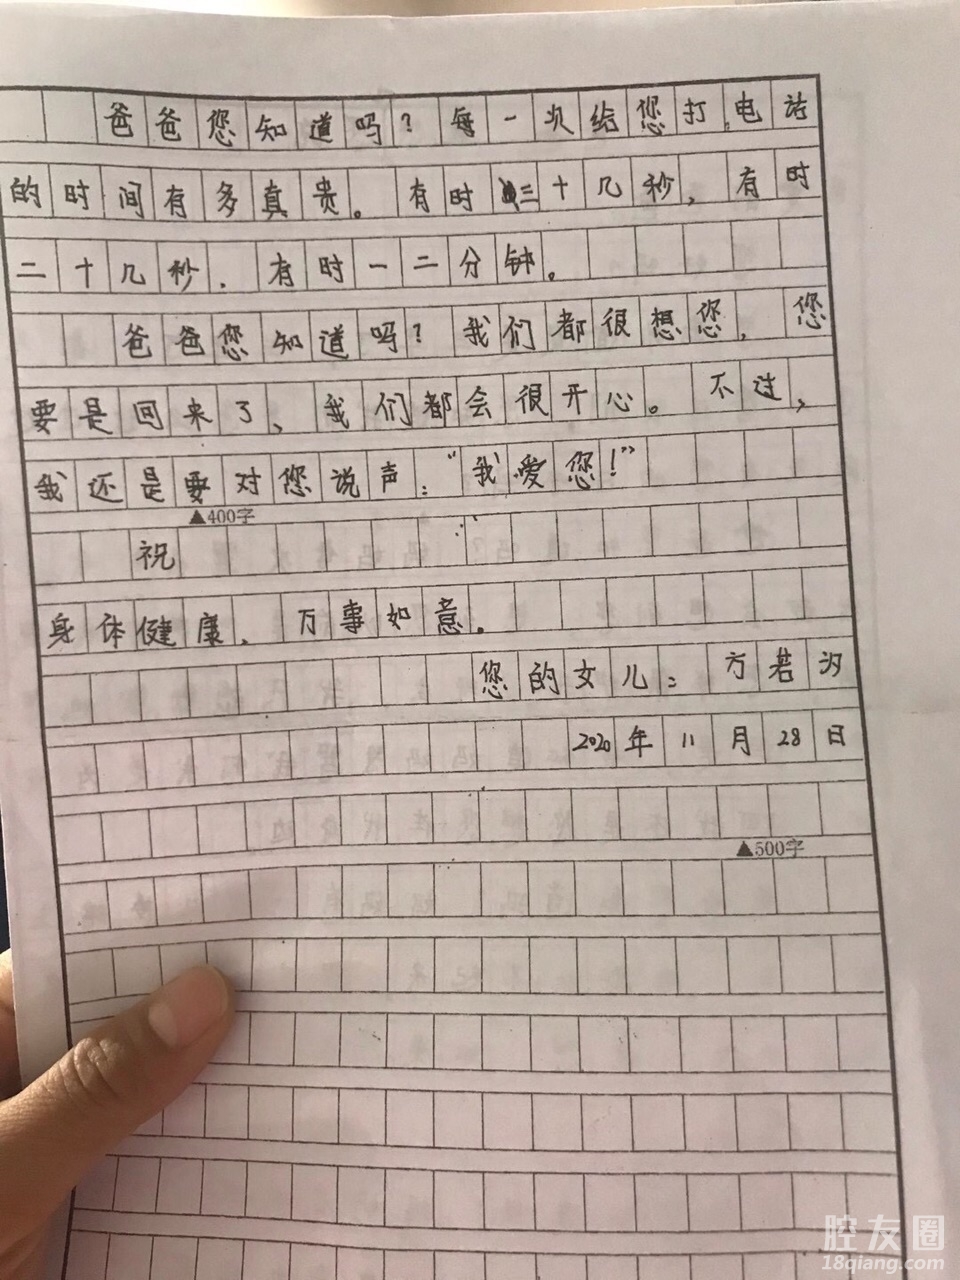 爸爸您知道吗？每一次给您打电话
的时间有多真贵。有时三十几秒，有时
二十几秒．有时一二分钟。
爸爸您知道吗？我们都很想您，您
要是回来了、我们都会很开心。不过，
我还是要对您说声：“我爱您！”
▲400字
祝
身体健康、万事如意。
您的女儿：方若汐
2020年11月28日
▲500字
腔友圈
18qiang.com